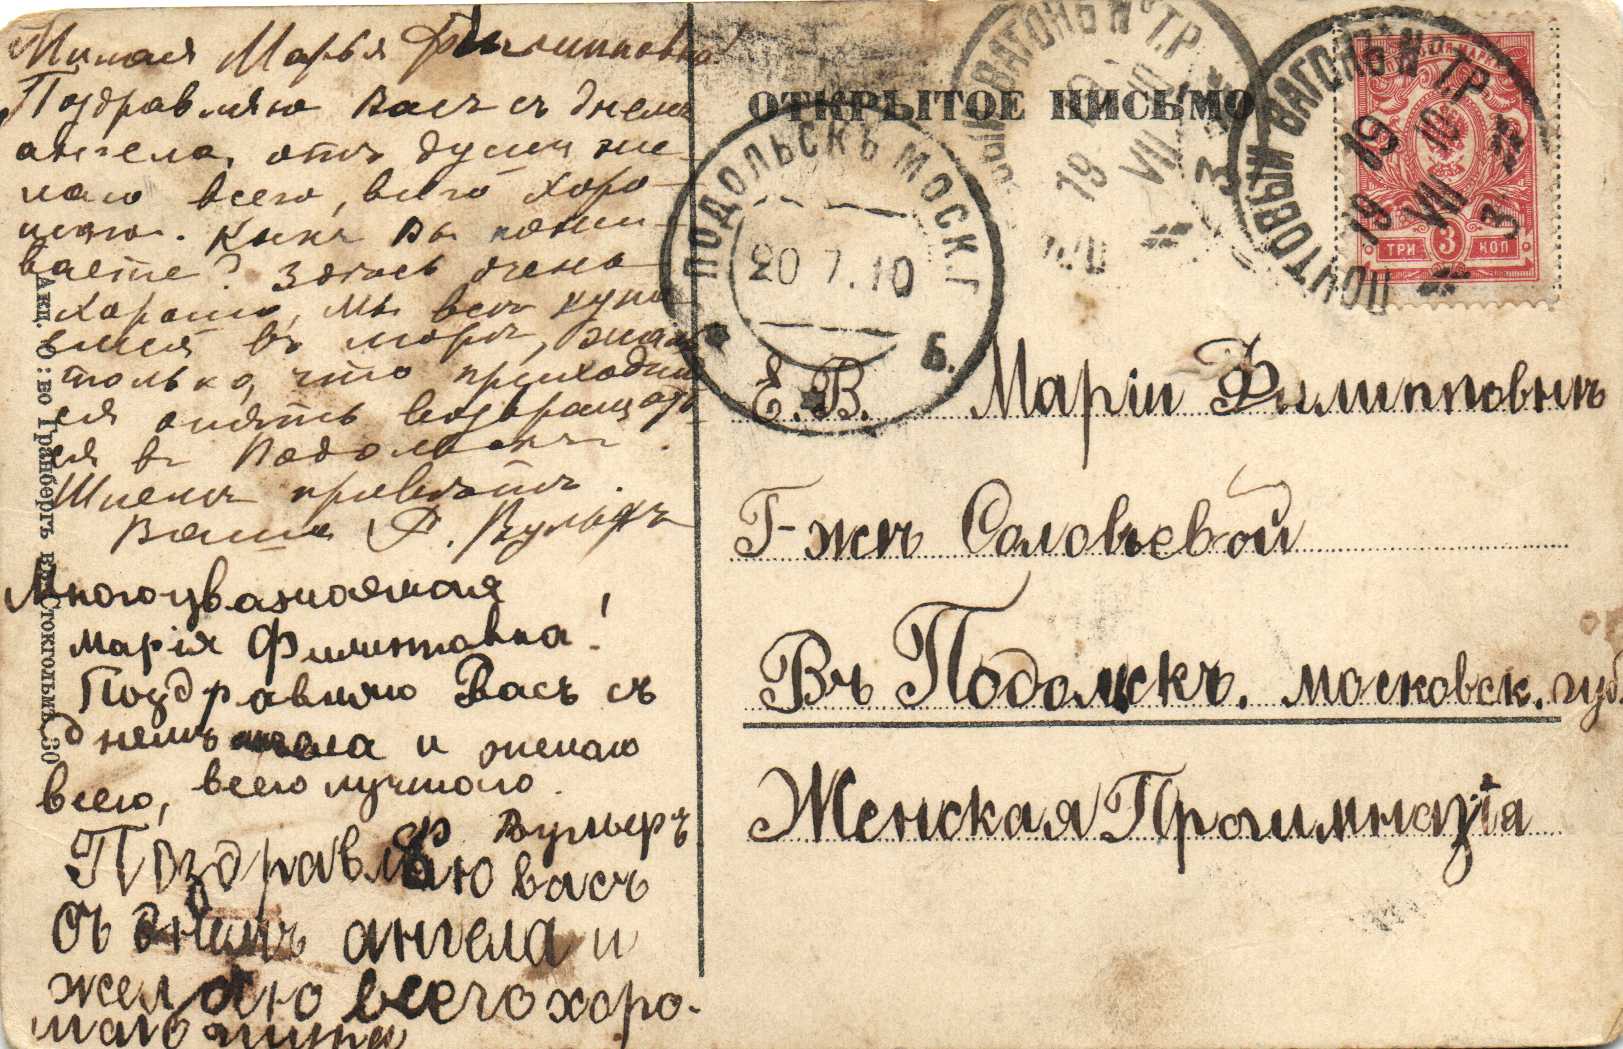 Милая Марья Филипповна!
Поздравляю Васъ съ днемъ
ангела, отъ души же-
лаю всего, всего хоро-
шаго. Какъ Вы пожи-
ваете? Здесь очень
хорошо, мы все купа-
емся въ море, жаль
только, что приходит-
ся опять возвращать-
ся въ Подольскъ.
Шлемъ приветъ.
Ваша Р. Вульфъ
Многоуважаемая
Марія Филипповна!
Поздравляю Васъ съ
днемъ ангела и желаю
всего, всего лучшаго.
Вульфъ
Поздравляю васъ
съ днемъ ангела и
желаю всего хоро-
шаго
Акц. О:во Гранбергъ въ Стокгольмѣ 30
ОТКРЫТОЕ ПИСЬМО
ПОДОЛЬСКЪ МОСК. Г.
20 7.10
Б.
ПОЧТОВЫЙ ВАГОНЪ № Т.Р.
19 VII 10
3
ПОЧТОВЫЙ ВАГОНЪ № Т.Р.
19 VII 10
3
ТРИ 3 КОП
Е. В. Маріи Филипповнѣ
Г-жѣ Соловьевой
Въ Подольскъ. Московск. губ
Женская Прогимназія